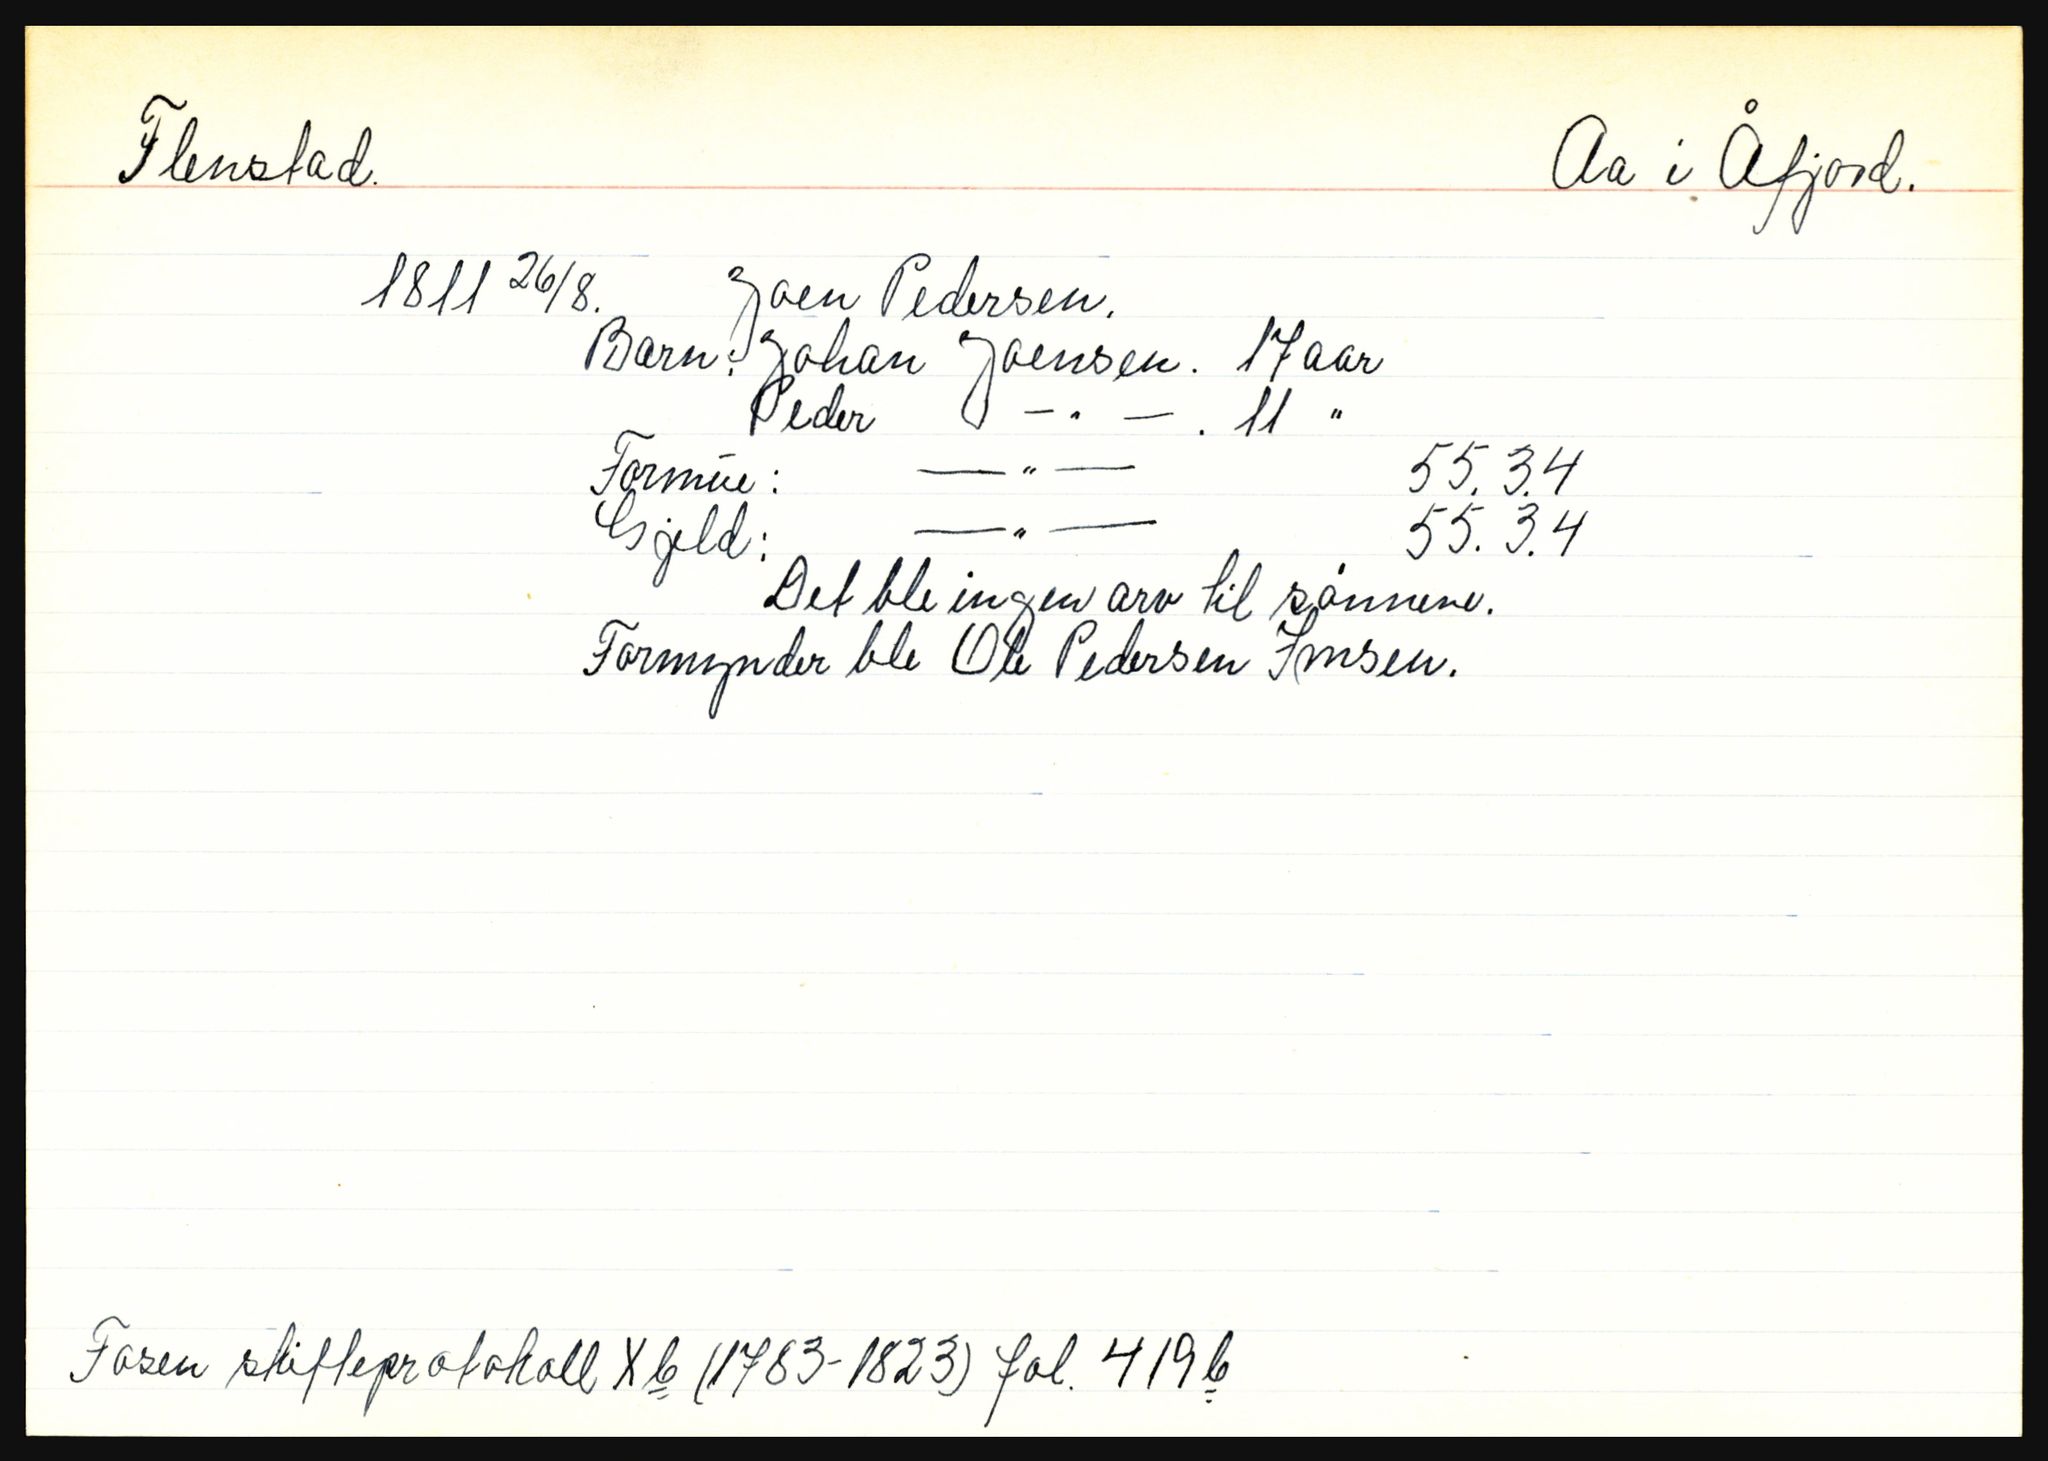 Flenstad. Aa i Åfjord.
1811 26/8. Joen Pedersen.
Barn: Johan Joensen. 17 aar
Peder — " — . 11 "
Formue: — " — 55.3.4
Gjeld: — " — 55.3.4
Det ble ingen arv til sønnene.
Formynder ble Ole Pedersen Imsen.
Fosen skifteprotokoll X b (1783-1823) fol. 419 b